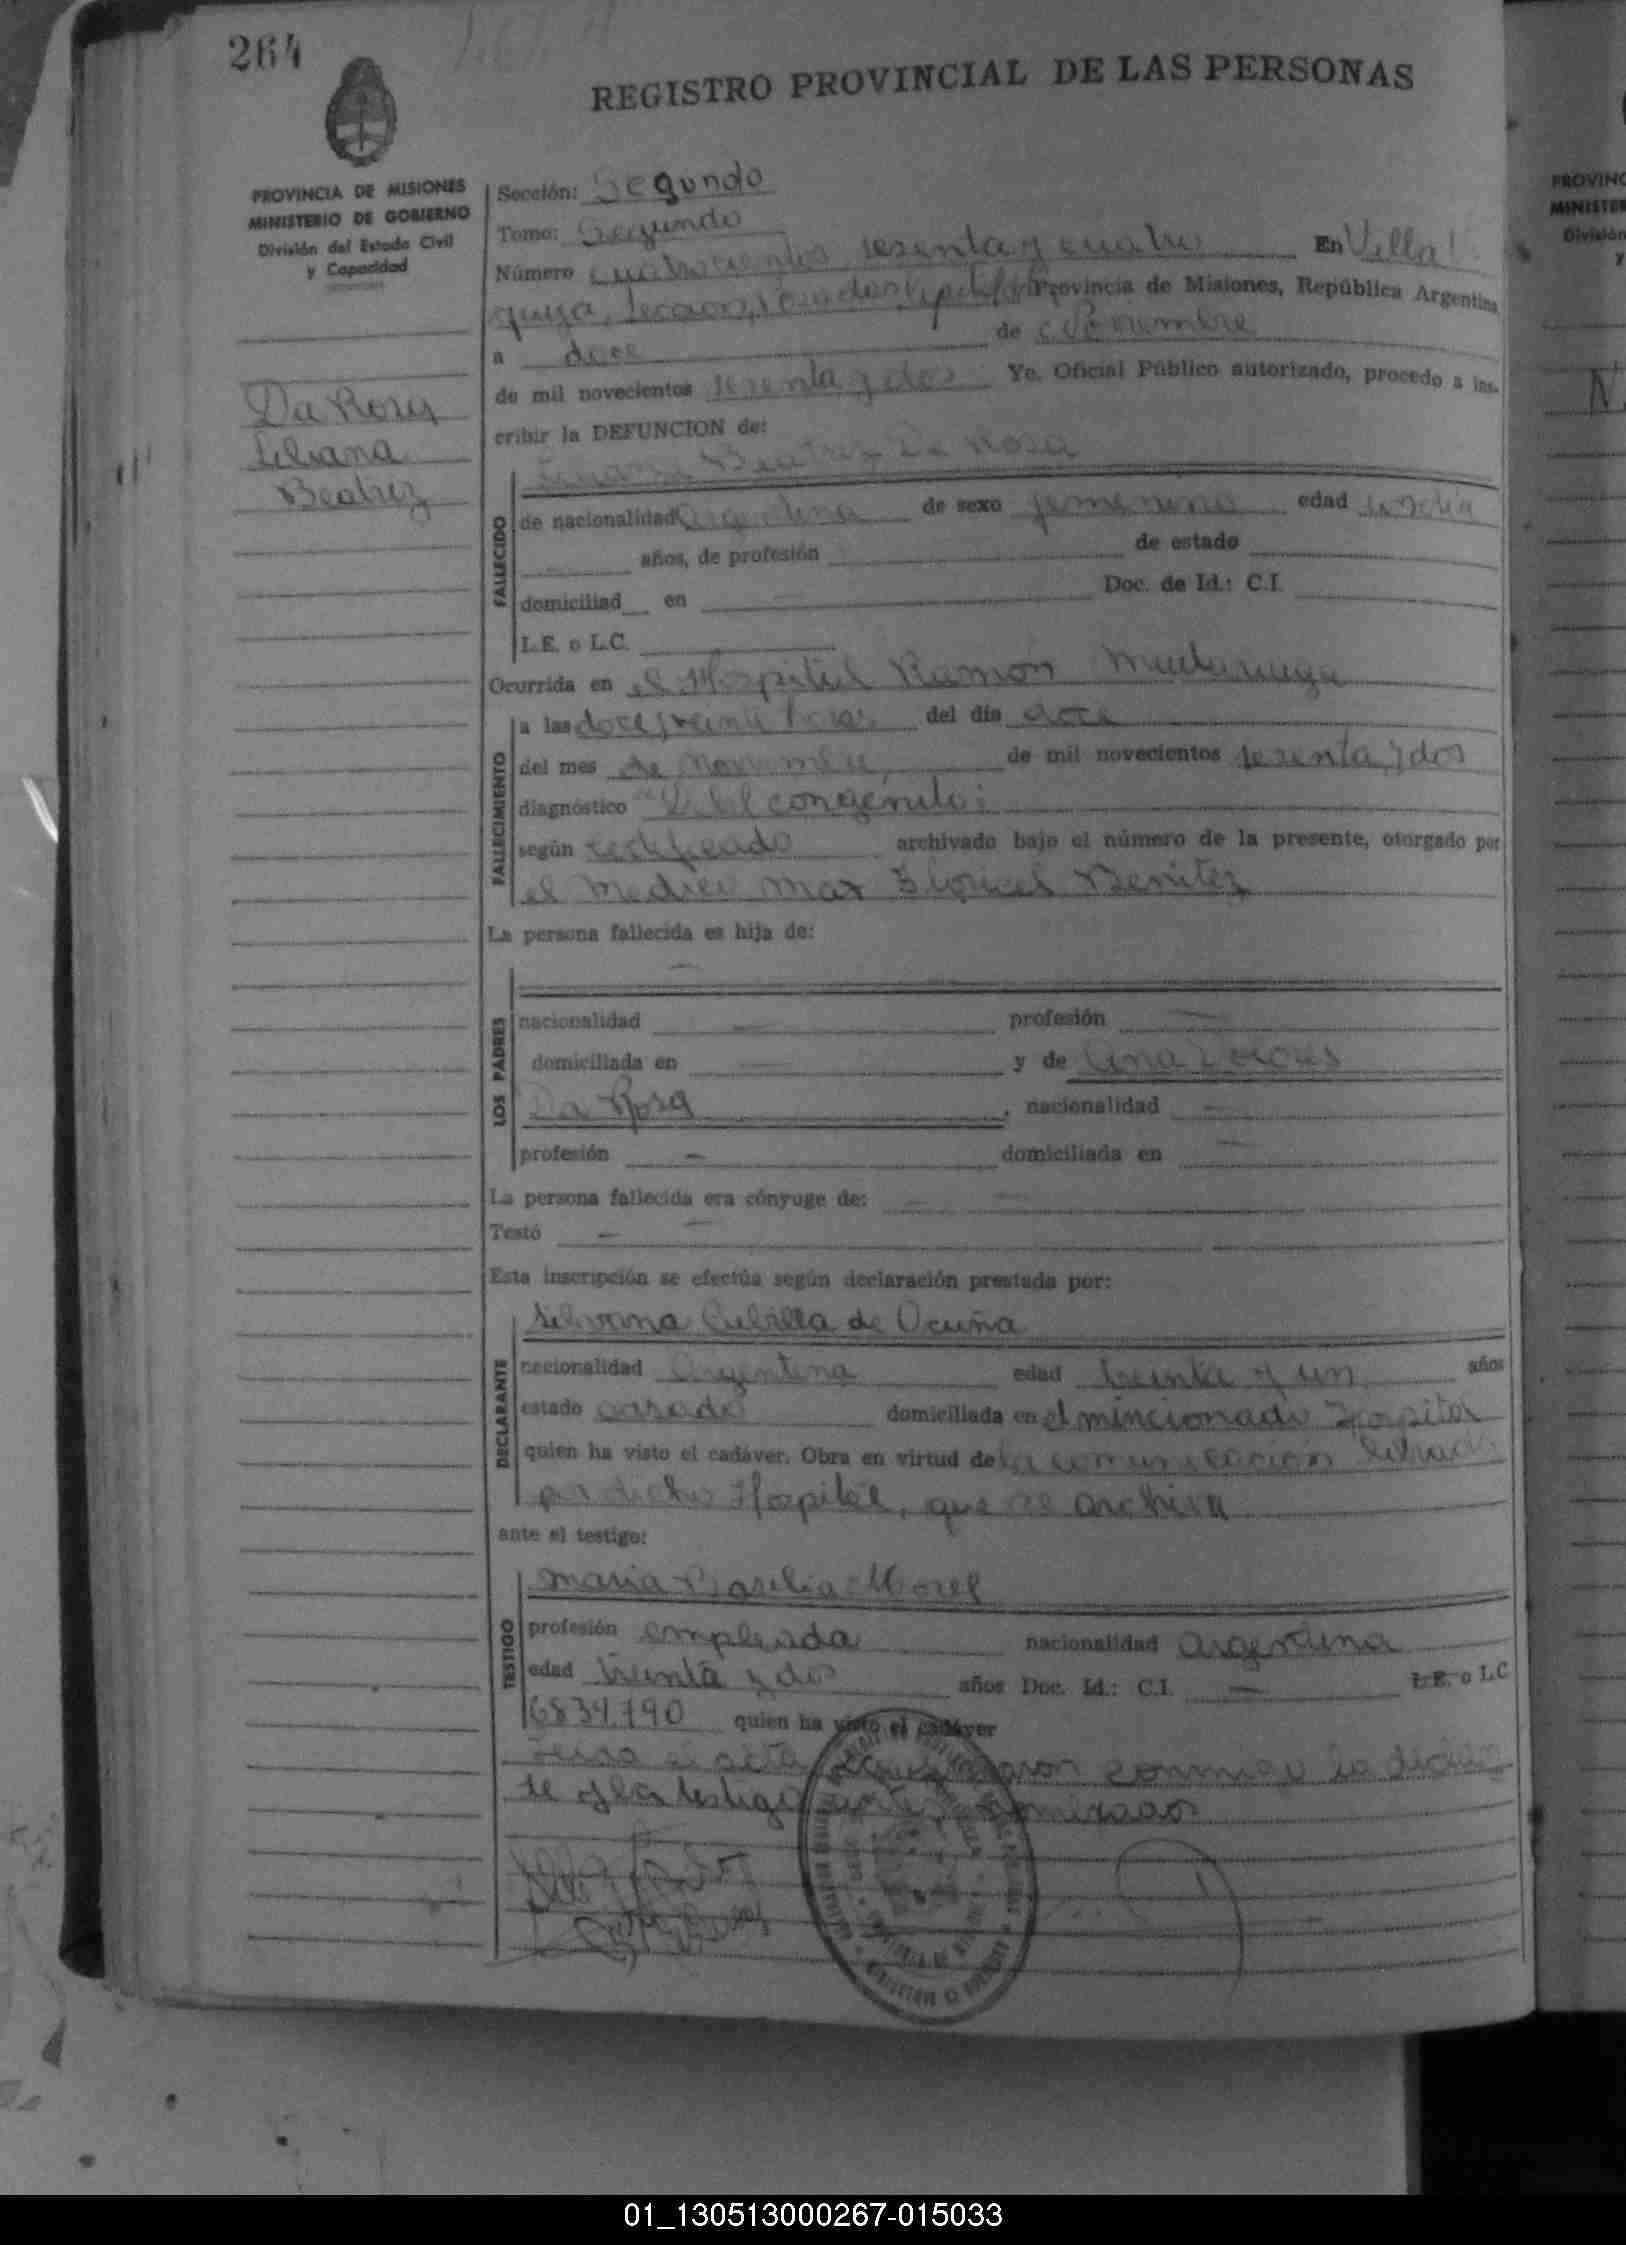 264
REGISTRO PROVINCIAL DE LAS PERSONAS
PROVINCIA DE MISIONES
MINISTERIO DE GOBIERNO
División del Estado Civil
y Capacidad
Sección: Segundo
Tomo: Segundo
Número cuatrocientos sesenta y cuatro En Villa
Provincia de Misiones, República Argentina
a doce de Noviembre
de mil novecientos sesenta y dos Yo, Oficial Público autorizado, procedo a ins-
cribir la DEFUNCION de:
Da Rosa
Liliana
Beatriz
FALLECIDO
Beatriz Da Rosa
de nacionalidad Argentina de sexo femenino edad un día
años, de profesión de estado
domiciliad en Doc. de Id.: C.I.
L.E. o L.C.
Ocurrida en el Hospital Ramón Madariaga
FALLECIMIENTO
a las doce y veinte horas del día doce
del mes de Noviembre de mil novecientos sesenta y dos
diagnóstico "Debil congenito"
según certificado archivado bajo el número de la presente, otorgado por
el medico Max Benitez
La persona fallecida es hija de:
LOS PADRES
—
nacionalidad — profesión —
domiciliada en — y de Ana Dolores
Da Rosa, nacionalidad —
profesión — domiciliada en —
La persona fallecida era cónyuge de: — —
Testó — —
Esta inscripción se efectúa según declaración prestada por:
DECLARANTE
Silvana Cubilla de Ocuña
nacionalidad Argentina edad treinta y un años
estado casada domiciliada en el mincionado Hospital
quien ha visto el cadáver. Obra en virtud de la comunicación
por dicho Hospital, que se archiva
ante el testigo:
TESTIGO
Maria Basilia Morel
profesión empleada nacionalidad Argentina
edad treinta y dos años Doc. Id.: C.I. — L.E. o L.C
6834790 quien ha visto el cadáver
el acta conmigo la
te y la testigo antes nombradas
01_130513000267-015033
PROVINC
MINISTER
División
y
N